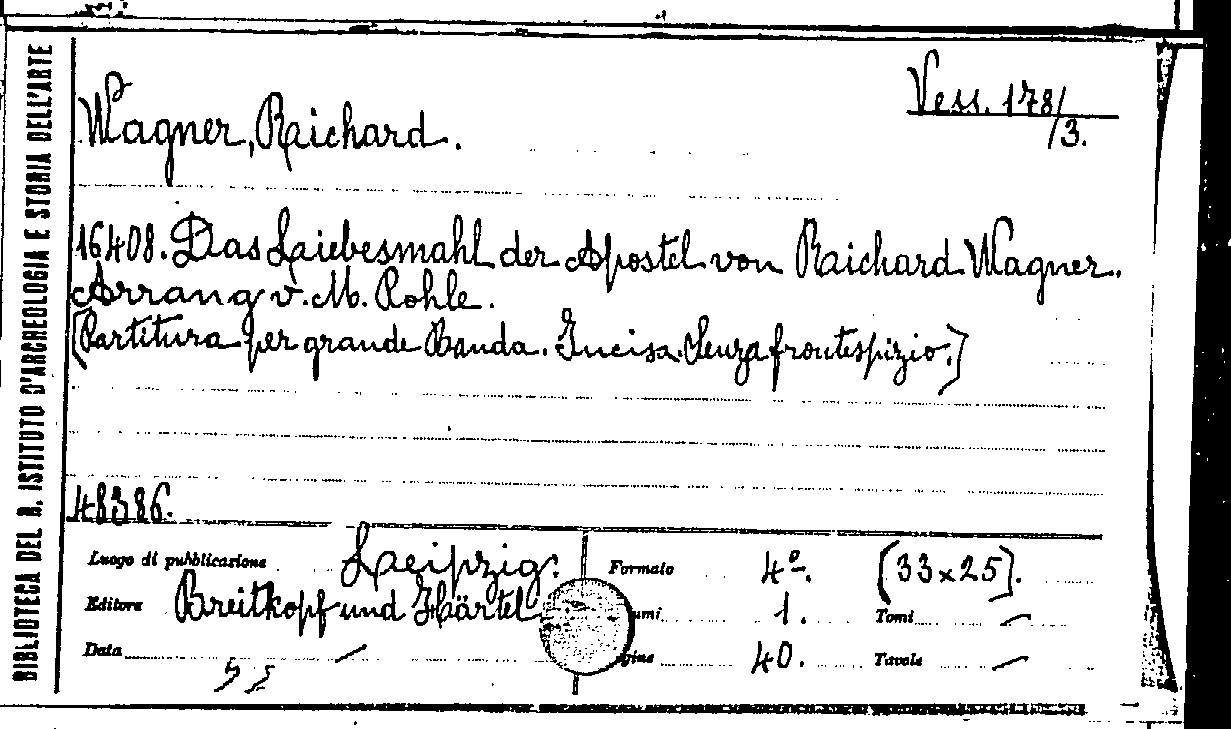 BIBLIOTECA DEL R. ISTITUTO D'ARCHEOLOGIA E STORIA DELL'ARTE
Vess. 178/
/3.
Wagner, Raichard.
16408. Das Laiebesmahl der Apostel von Raichard Wagner.
Arrang v. M. Pohle.
[Partitura per grande Banda. Incisa. Senza frontespizio.]
48386.
Luogo di pubblicazione Leipzig. Formato 4º. [33x25].
Editore Breitkopf und Härtel umi 1. Tomi —
Data — gine 40. Tavole —